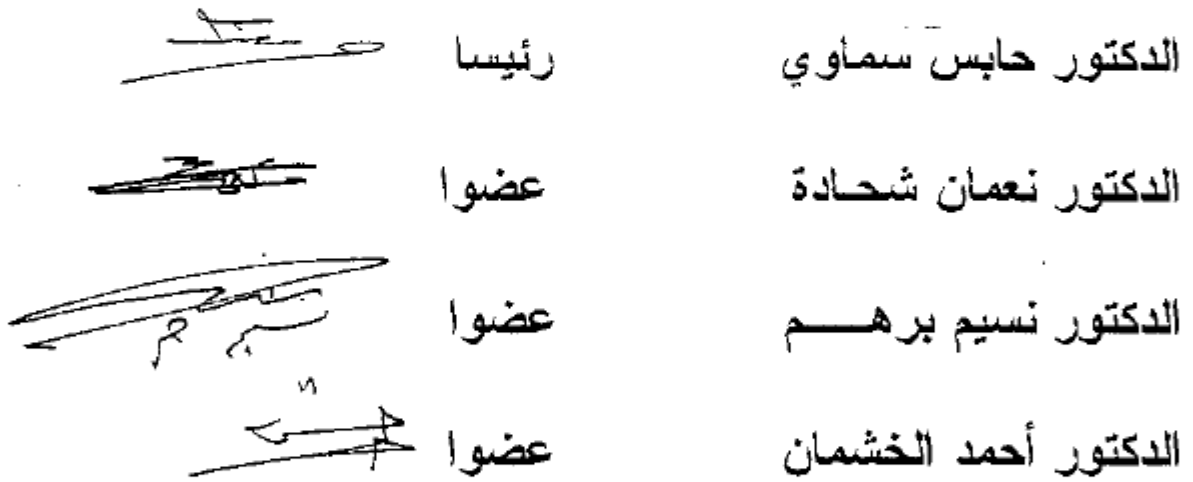 الدكتور حابس سماوي رئيسا
الدكتور نعمان شحادة عضوا
الدكتور نسيم برهم عضوا
الدكتور أحمد الخشمان عضوا